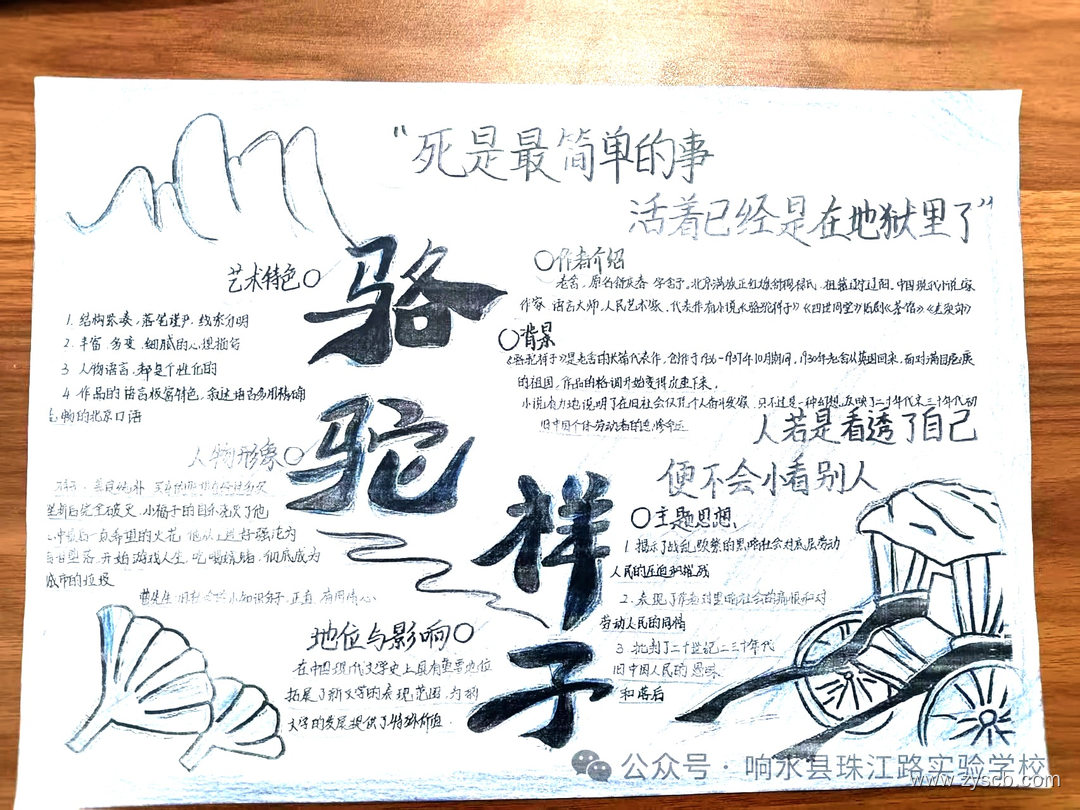 “死是最简单的事
活着已经是在地狱里了”
骆驼祥子
艺术特色
1. 结构紧凑，落笔谨严，线索分明
2. 丰富、多变、细腻的心理描写
3. 人物语言，都是个性化的
4. 作品的语言极富特色，叙述语言多用精确
流畅的北京口语
作者介绍
老舍，原名舒庆春 字舍予，北京满族正红旗
中国现代小说家
作家 语言大师，人民艺术家，代表作有小说《骆驼祥子》《四世同堂》话剧《茶馆》《龙须沟》
背景
《骆驼祥子》是老舍的长篇代表作，创作于1936-1937年10月期间，1930年老舍从英国回来，面对满目疮痍
的祖国，作品的格调开始变得沉重下来。
小说有力地说明了在旧社会
个人奋斗发家，只不过是一种幻想，反映了二十年代末三十年代初
旧中国个体劳动者的悲惨命运
人若是看透了自己
便不会小看别人
人物形象
祥子：善良纯朴
小福子的自杀浇灭了他
心中最后一点希望的火花，他从上进好强沦为
自甘堕落，开始游戏人生，吃喝嫖赌，彻底成为
城市的垃圾
曹先生
小知识分子，正直
地位与影响
在中国现代文学史上具有重要地位
拓展了新文学的表现范围，为新
文学的发展提供了特殊价值
主题思想
1. 揭示了战乱、败繁的黑暗社会对底层劳动
人民的压迫和摧残
2. 表现了作者对黑暗社会的痛恨和对
劳动人民的同情
3. 批判了二十世纪二三十年代
旧中国人民的愚昧
和落后
公众号·响水县珠江路实验学校
www.zyscb.com